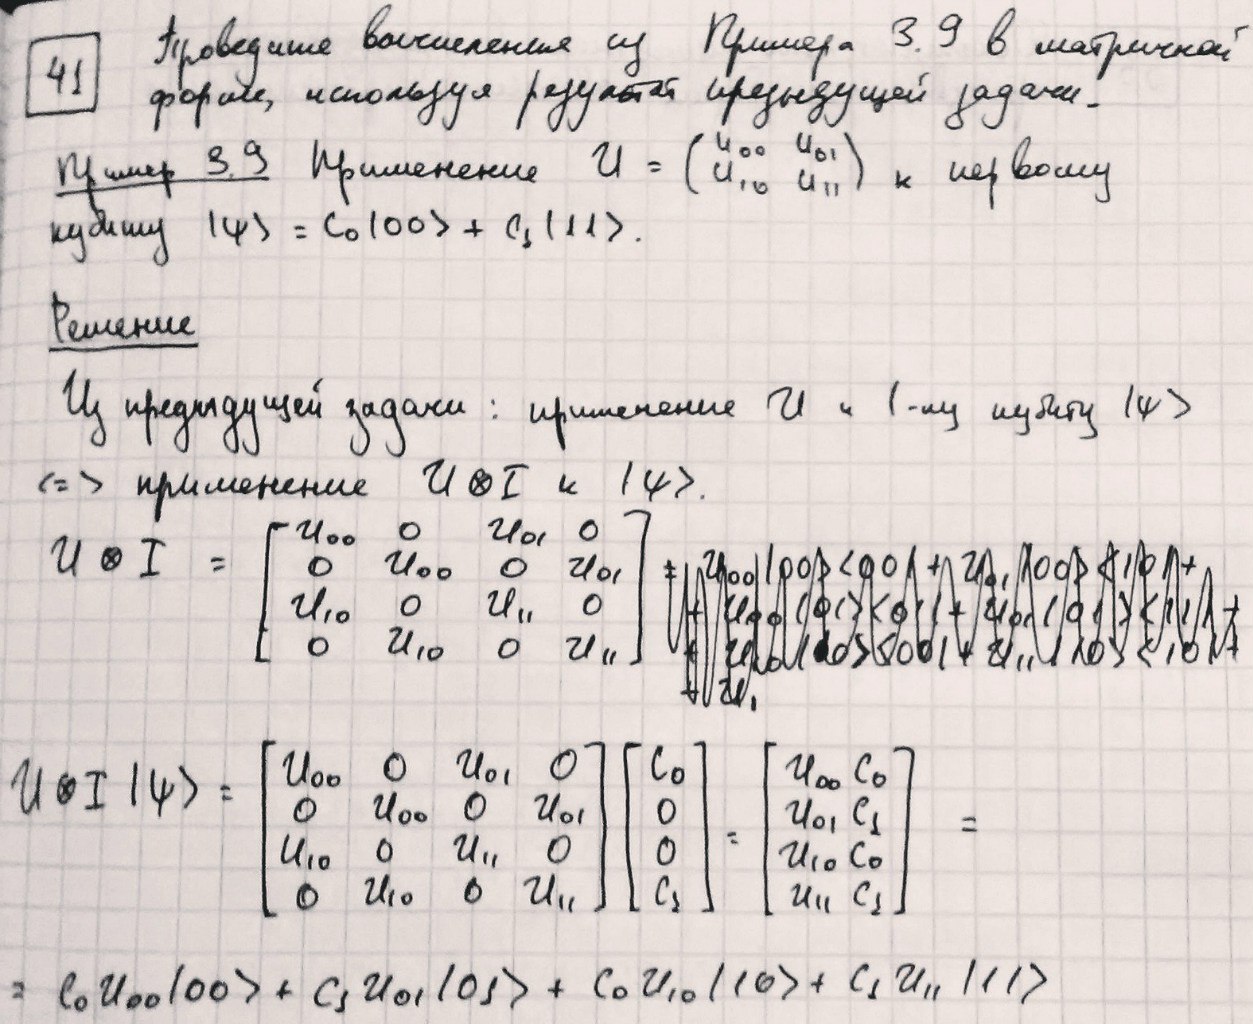 41 Проведите вычисления из Примера 3.9 в матричной
форме, используя результат предыдущей задачи.
Пример 3.9 Применение U = (u₀₀ u₀₁
u₁₀ u₁₁) к первому
кубиту |ψ> = c₀|00> + c₁|11>.
Решение
Из предыдущей задачи: применение U к 1-му кубиту |ψ>
<=> применение U ⊗ I к |ψ>.
U ⊗ I = [u₀₀ 0 u₀₁ 0
0 u₀₀ 0 u₀₁
u₁₀ 0 u₁₁ 0
0 u₁₀ 0 u₁₁]
= u₀₀|00><00| + u₀₁|00><10| +
+ u₀₀|01><01| + u₀₁|01><11| +
+ u₁₀|10><00| + u₁₁|10><10| +
+ u₁
U ⊗ I |ψ> = [u₀₀ 0 u₀₁ 0
0 u₀₀ 0 u₀₁
u₁₀ 0 u₁₁ 0
0 u₁₀ 0 u₁₁] [c₀
0
0
c₁] = [u₀₀ c₀
u₀₁ c₁
u₁₀ c₀
u₁₁ c₁] =
= c₀u₀₀|00> + c₁u₀₁|01> + c₀u₁₀|10> + c₁u₁₁|11>